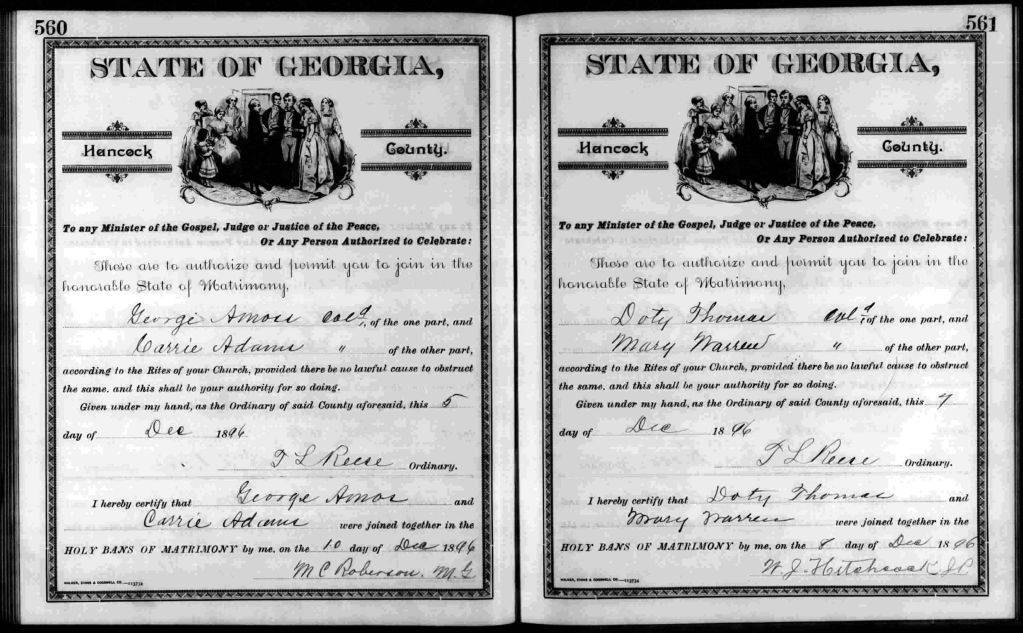 560
STATE OF GEORGIA,
Hancock County.
To any Minister of the Gospel, Judge or Justice of the Peace,
Or Any Person Authorized to Celebrate:
These are to authorize and permit you to join in the
honorable State of Matrimony,
George Amoss Cold, of the one part, and
Carrie Adams " of the other part,
according to the Rites of your Church, provided there be no lawful cause to obstruct
the same, and this shall be your authority for so doing.
Given under my hand, as the Ordinary of said County aforesaid, this 5
day of Dec 1896
T L Reese Ordinary.
I hereby certify that George Amos and
Carrie Adams were joined together in the
HOLY BANS OF MATRIMONY by me, on the 10 day of Dec 1896
M C Roberson. M.G
WALKER, EVANS & COGSWELL CO.
561
STATE OF GEORGIA,
Hancock County.
To any Minister of the Gospel, Judge or Justice of the Peace,
Or Any Person Authorized to Celebrate:
These are to authorize and permit you to join in the
honorable State of Matrimony,
Doty Thomas Cold, of the one part, and
Mary Warren " of the other part,
according to the Rites of your Church, provided there be no lawful cause to obstruct
the same, and this shall be your authority for so doing.
Given under my hand, as the Ordinary of said County aforesaid, this 7
day of Dec 1896
T L Reese Ordinary.
I hereby certify that Doty Thomas and
Mary Warren were joined together in the
HOLY BANS OF MATRIMONY by me, on the 8 day of Dec 1896
W. J. Hitchcock JP
WALKER, EVANS & COGSWELL CO.